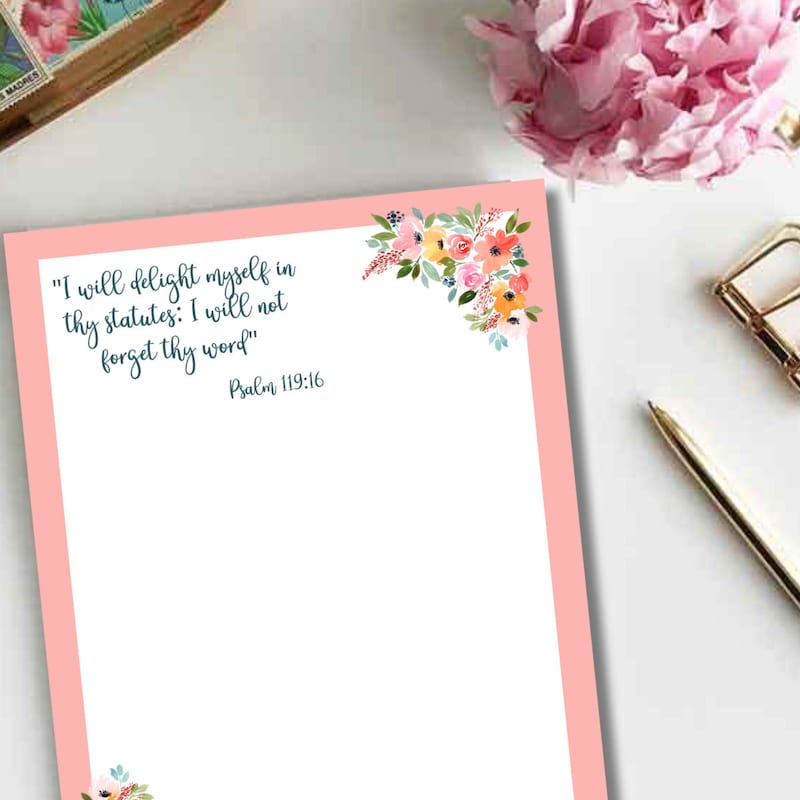 S MADRES
"I will delight myself in
thy statutes: I will not
forget thy word"
Psalm 119:16